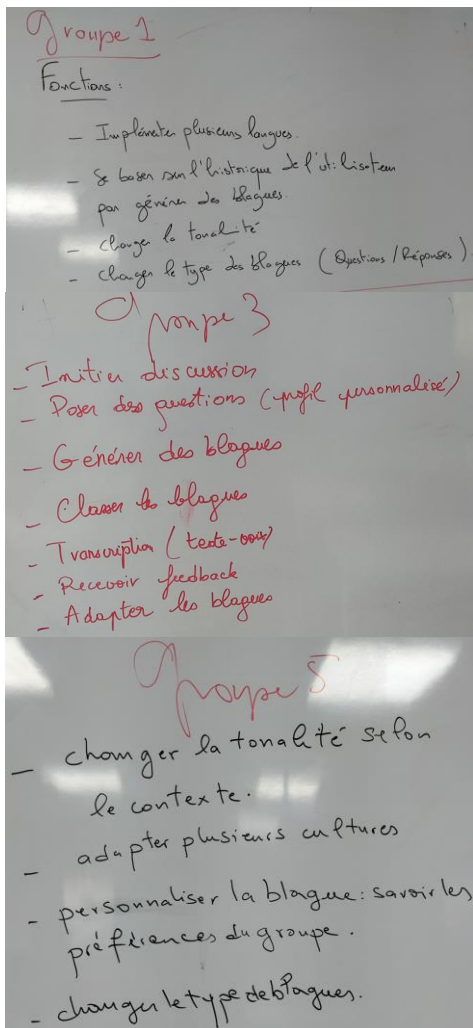 Groupe 1
Fonctions :
- Implémenter plusieurs langues.
- Se baser sur l'historique de l'utilisateur
par générer des blagues.
- changer la tonalité
- changer le type des blagues (Questions / Réponses)
Groupe 3
- Initier discussion
- Poser des questions (profil personnalisé)
- Générer des blagues
- Classer les blagues
- Transcription (texte-voix)
- Recevoir feedback
- Adapter les blagues
Groupe 5
- changer la tonalité selon
le contexte.
- adapter plusieurs cultures
- personnaliser la blague : savoir les
préférences du groupe.
- changer le type de blagues.